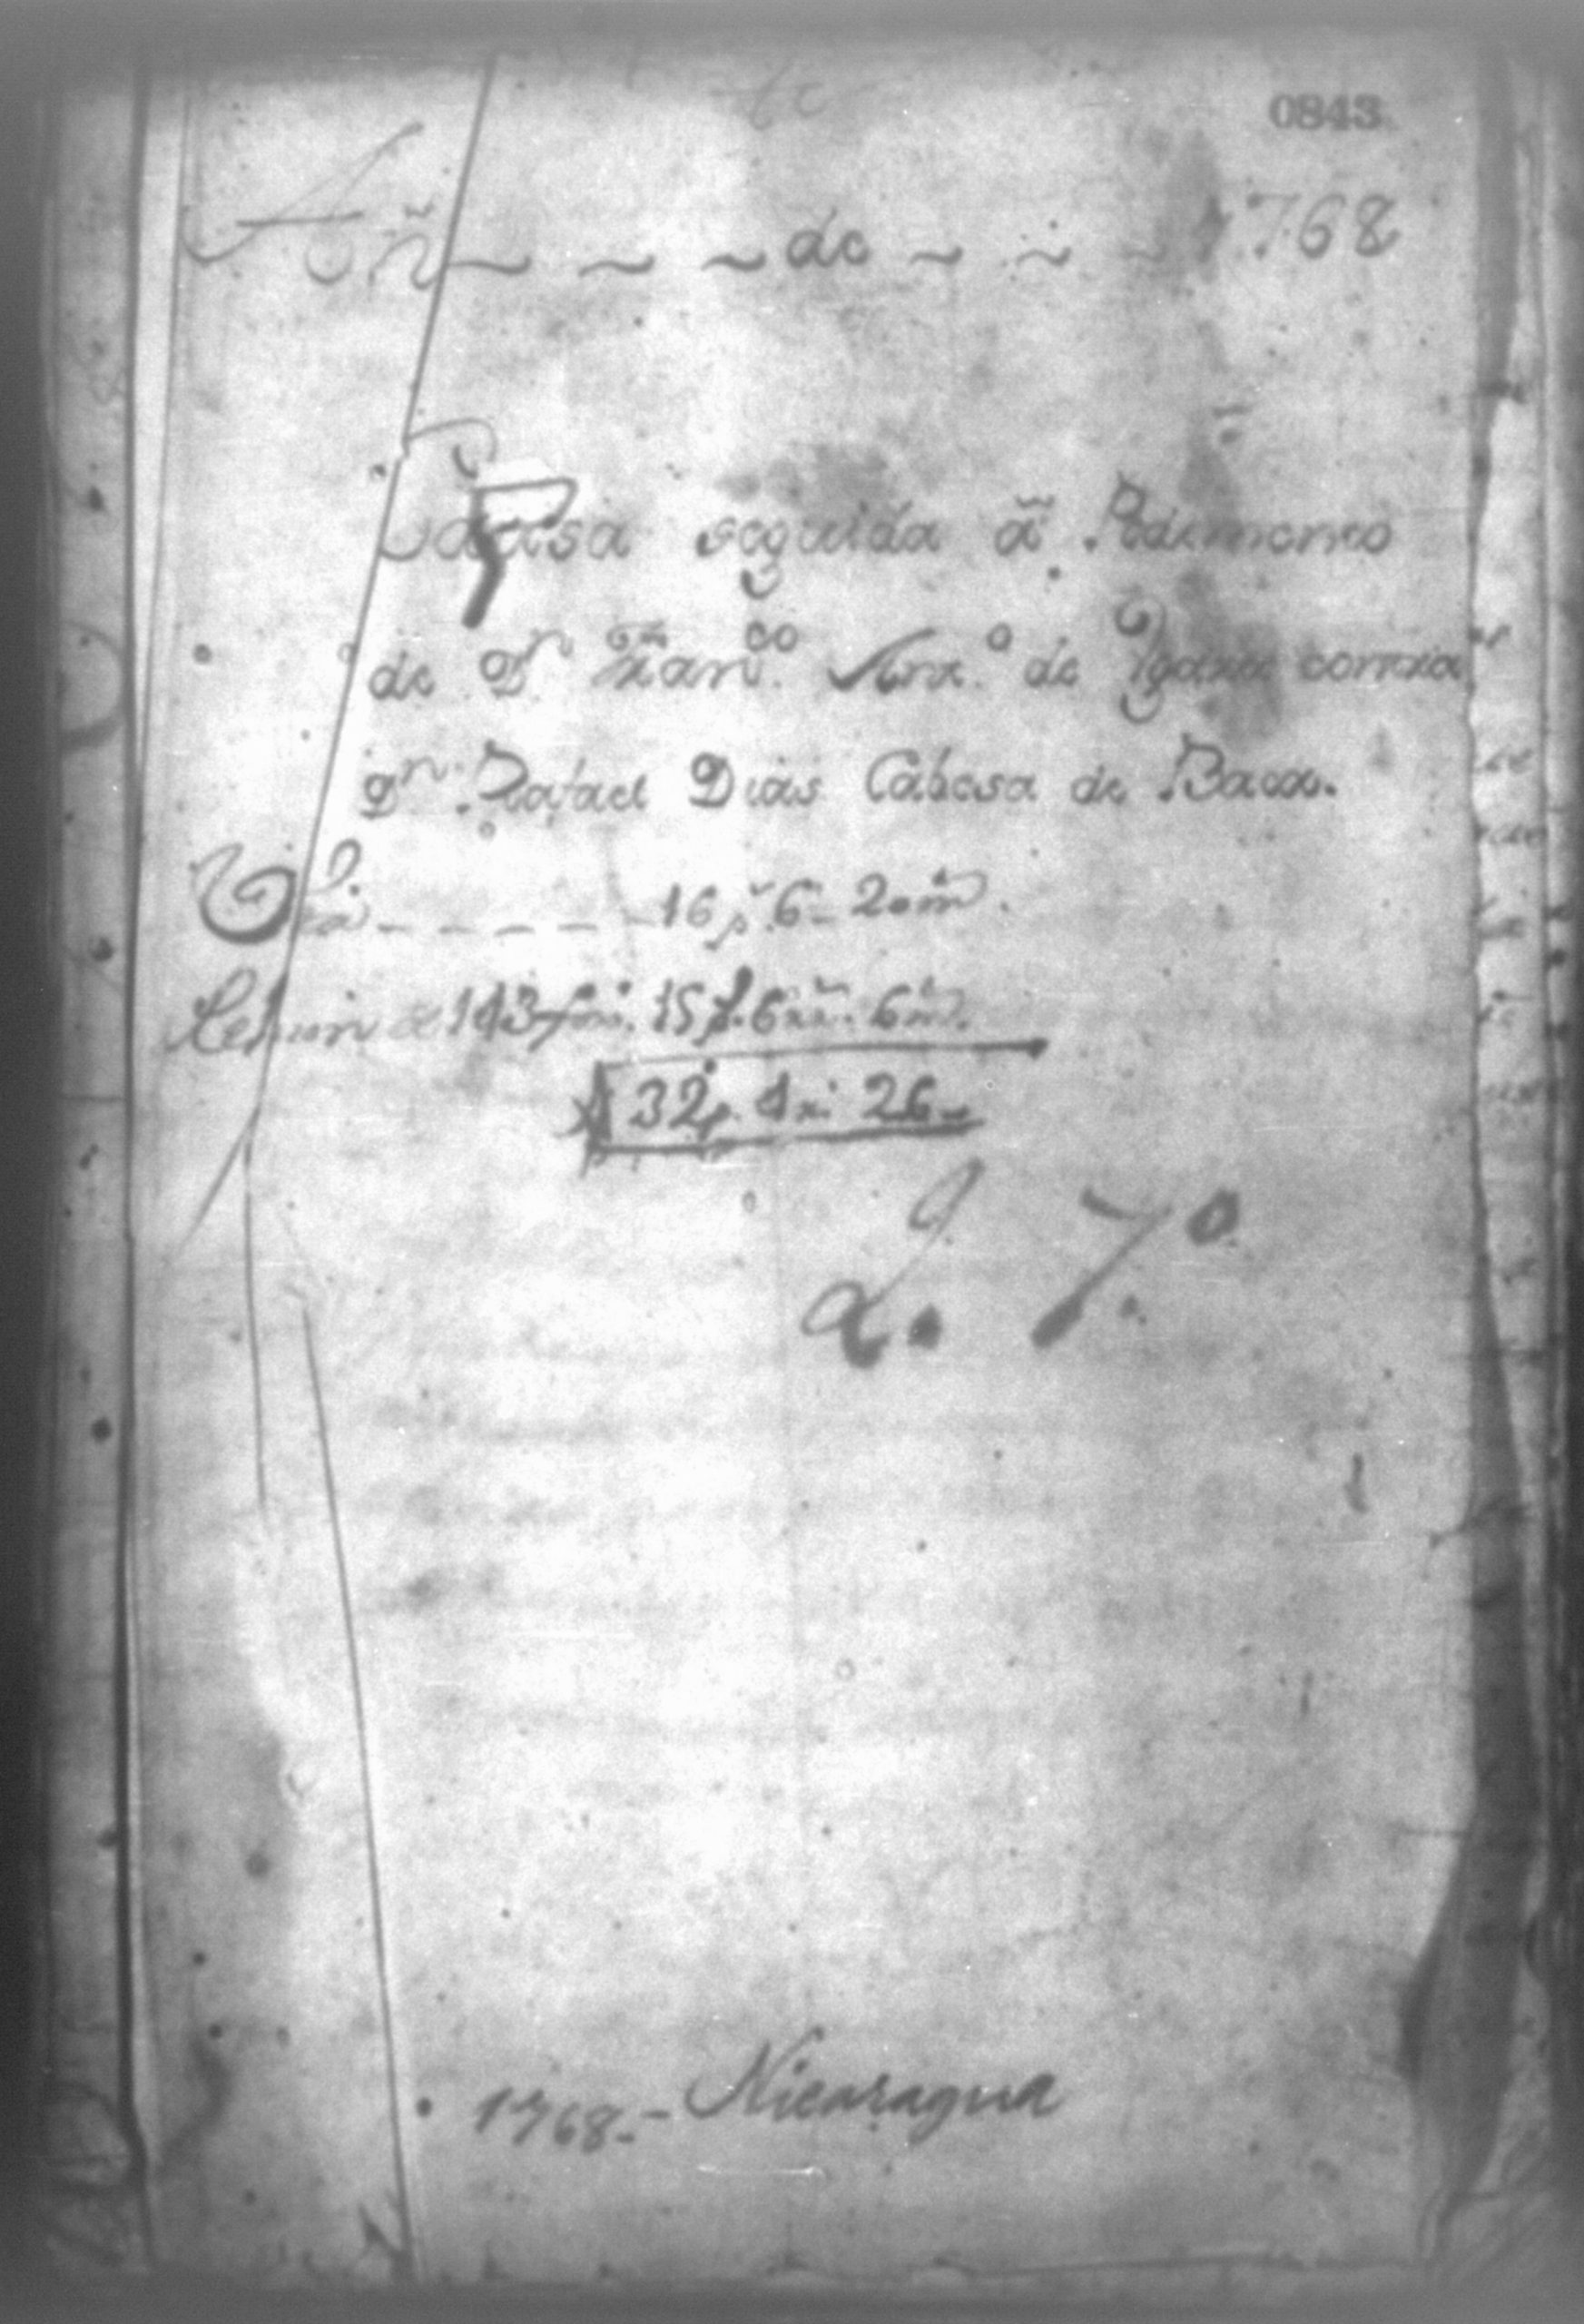 0843
Añ ~ ~ ~ de ~ ~ ~ 1768
Causa seguida ã Pedimento
de Dn Franco Anto de contra
Dn Rafael Dias Cabesa de Baca.
16 ps 6 - 20 m.
143 15 ps. 6 rs. 6 m.
32 p. 4 r. 26
L. 7o
1768.- Nicaragua